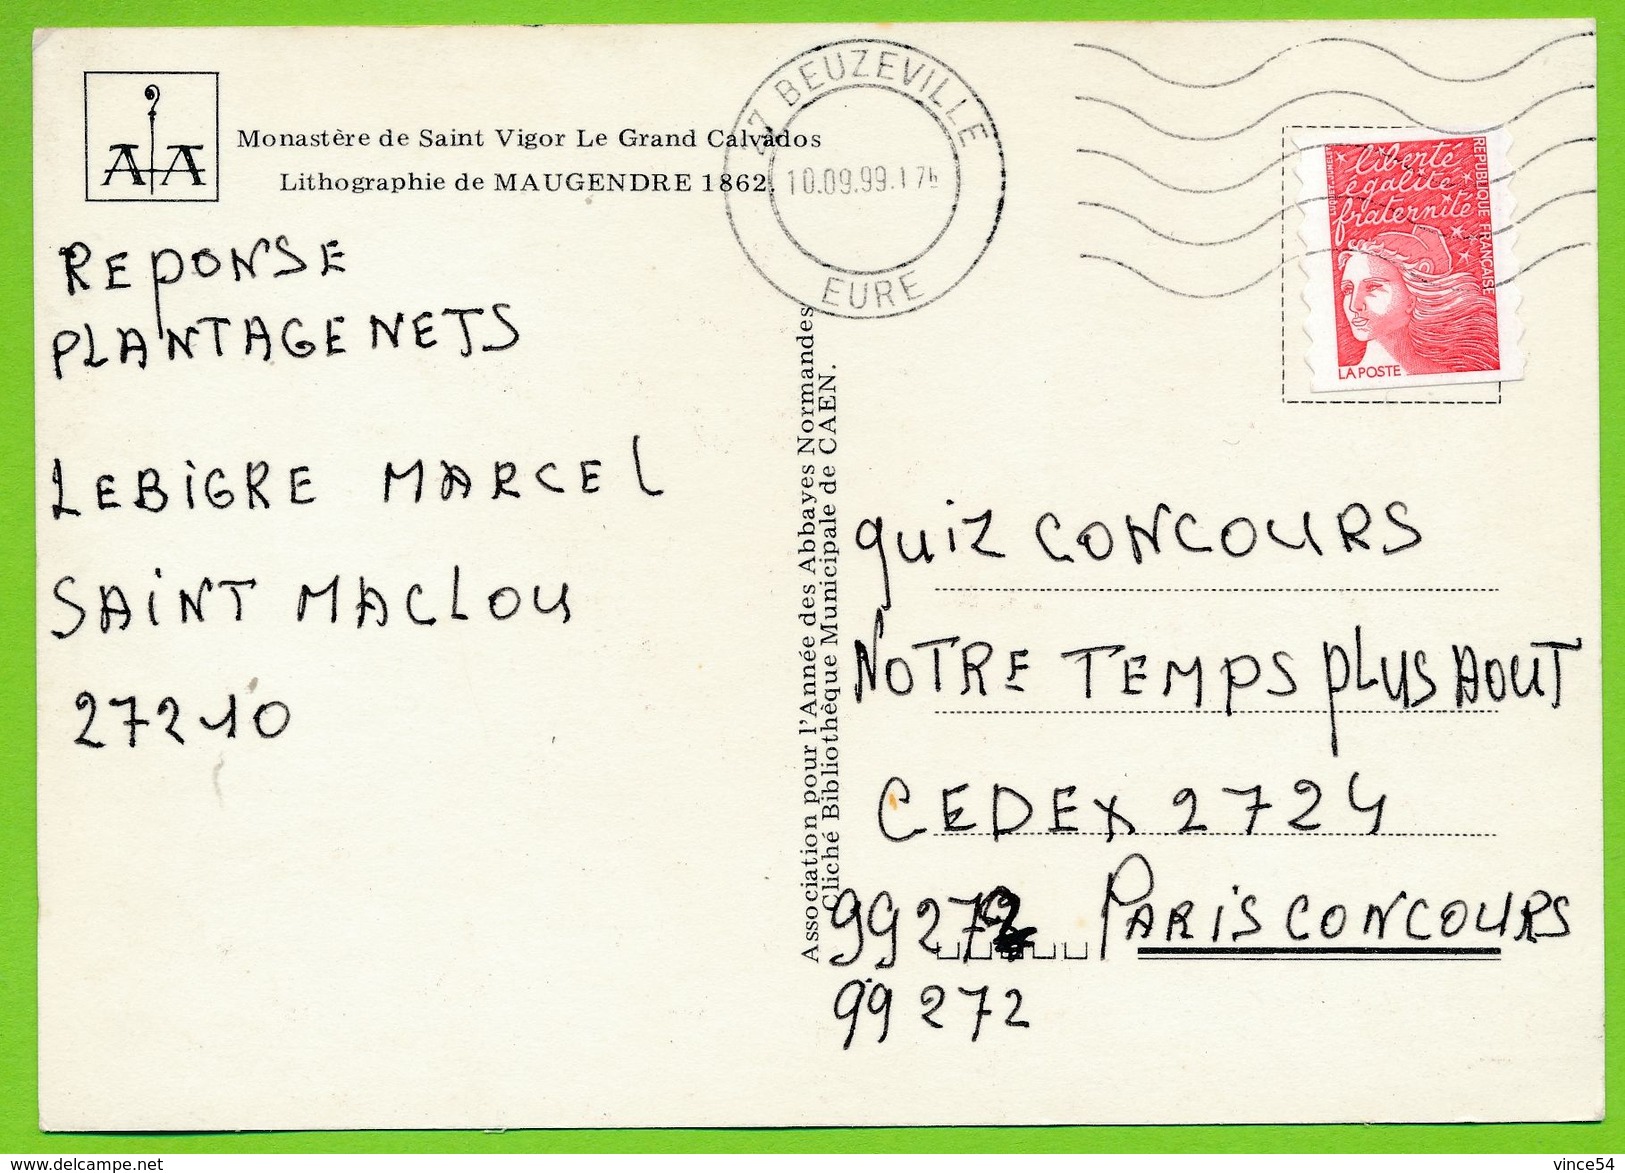 Monastère de Saint Vigor Le Grand Calvados
Lithographie de MAUGENDRE 1862.
AA
27 BEUZEVILLE
10.09.99.17h
EURE
liberté
égalité
fraternité
REPUBLIQUE FRANÇAISE
LA POSTE
REPONSE
PLANTAGENETS
LEBIGRE MARCEL
SAINT MACLOU
27210
Association pour l'Année des Abbayes Normandes
Cliché Bibliothèque Municipale de CAEN.
QUIZ CONCOURS
NOTRE TEMPS PLUS AOUT
CEDEX 2724
99272 PARIS CONCOURS
99272
delcampe.net
vince54